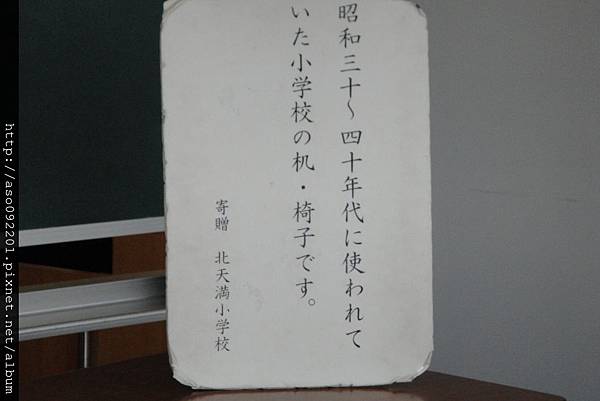 昭和三十～四十年代に使われて
いた小学校の机・椅子です。
寄贈　北天満小学校
http://aso092201.pixnet.net/album